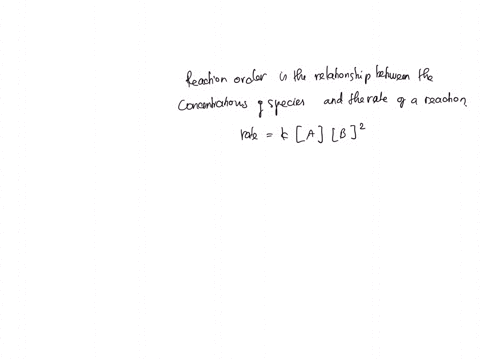 Reaction order is the relationship between the
concentrations of species and the rate of a reaction,
rate = k [A] [B]²